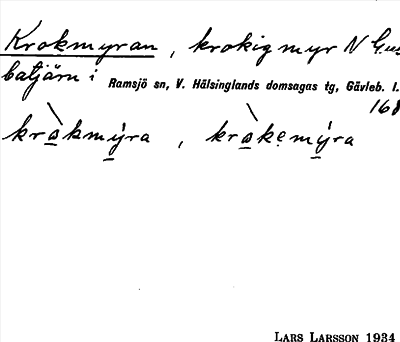 Krokmyran, krokig myr N Gus
batjärn i Ramsjö sn, V. Hälsinglands domsagas tg, Gävleb. l.
168
kràkmýra, kràkemýra
LARS LARSSON 1934